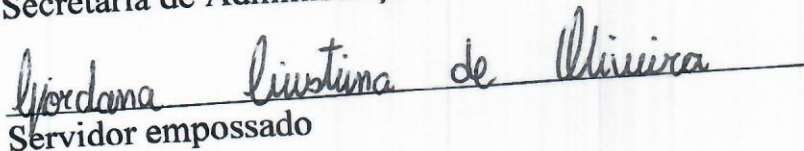 Secretaria de Administração
Giordana Ciustina de Oliveira
Servidor empossado